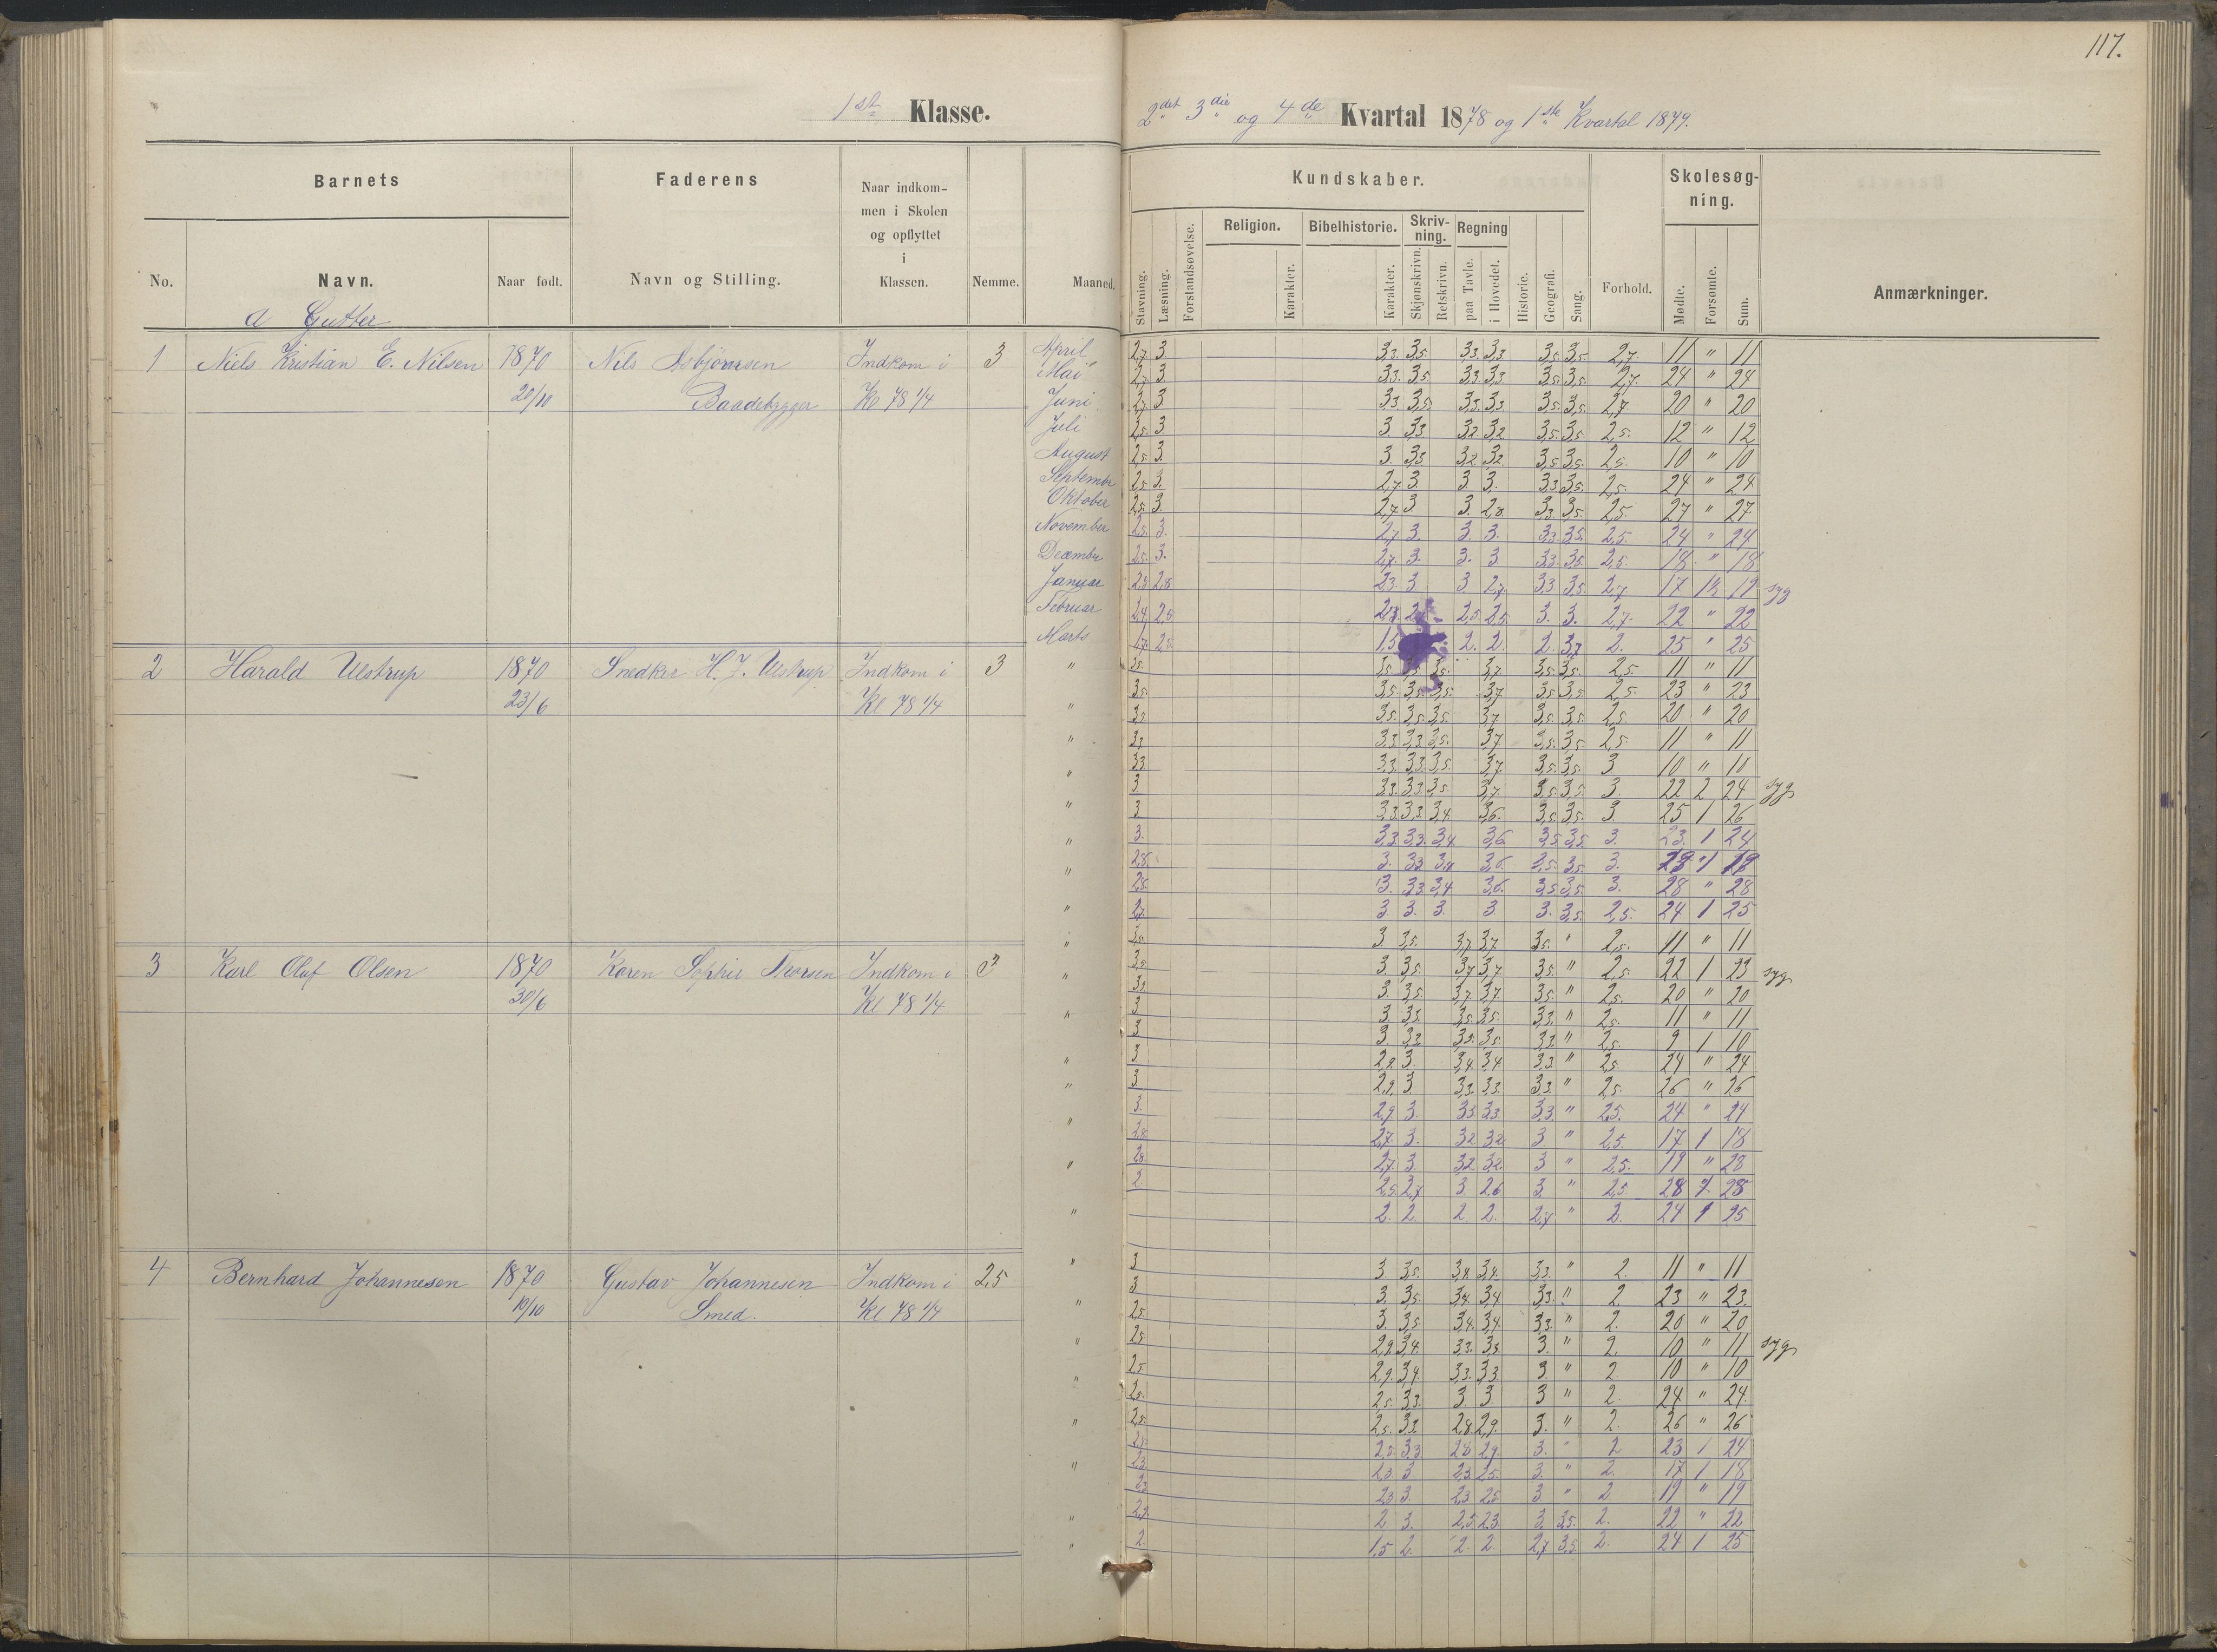 117.
1ste Klasse.
2det 3die og 4de Kvartal 1878 og 1ste Kvartal 1879.
Barnets
Faderens
Naar indkom-
men i Skolen
og opflyttet
i
Klassen.
No.
Navn.
Naar født.
Navn og Stilling.
Nemme.
Maaned.
Kundskaber.
Skolesøg-
ning.
Religion.
Bibelhistorie.
Skriv-
ning.
Regning
Stavning.
Læsning.
Forstandsøvelse.
Karakter.
Karakter.
Skjønskrivn.
Retskrivn.
paa Tavle.
i Hovedet.
Historie.
Geografi.
Sang.
Forhold.
Mødte.
Forsømte.
Sum.
Anmærkninger.
a Gutter
1 Niels Kristian E. Nilsen 1870 Nils Asbjørnsen Indkom i 3
20/10 Baadebygger Kl 78 1/4
April 2,7 3 3,3. 3,5 3,3. 3,3 3,5. 3,5. 2,7. 11 " 11
Mai 2,7 3 3,3. 3,5 3,3. 3,3. 3,5. 3,5. 2,7. 24 " 24
Juni 2,7 3 3,3 3,5. 3,3. 3,3 3,5. 3,5. 2,7 20 " 20
Juli 2,5. 3 3. 3,3 3,2 3,2 3,5. 3,5 2,5. 12 " 12
August 2,5 3. 3. 3,3 3,2. 3,2. 3,5 3,5. 2,5. 10 " 10
September 2,5 3. 2,7 3. 3 3. 3,3 3,5. 2,5. 24 " 24
Oktober 2,5. 3. 2,7 3 3. 2,8. 3,3. 3,5. 2,5. 27 " 27.
November 2,5. 3. 2,7 3. 3. 3. 3,3. 3,5. 2,5. 24 " 24
December 2,5. 3. 2,7. 3. 3. 3 3,3. 3,5. 2,5. 18. " 18
Januar 2,5 2,8 2,3. 3 3 2,7. 3,3 3,5. 2,7 17 syg
Februar 2,4. 2,5 2,5. 2,5. 3. 3. 2,7. 22 " 22
Marts 1,7. 2,5 1,5 2. 2. 2. 3,7 2. 25 " 25
2 Harald Ulstrup 1870 Snedker H. J. Ulstrup Indkom i 3
23/6 Kl 78 1/4
" 3,5. 3,5. 3,7 3,5 3,5. 2,5. 11 " 11
3,5. 3,5. 3,7. 3,5 3,5. 2,5. 23 " 23
" 3,5. 3,5. 3,5. 3,5. 3,7 3,5 3,5. 2,5. 20 " 20
" 3,3 3,3 3,3 3,5. 3,7 3,5. 3,5 2,5. 11 " 11
" 3,3 3,3. 3,3. 3,5. 3,7. 3,5. 3,5. 3 10 " 10
3 3,3. 3,3. 3,5 3,7 3,5. 3,5. 3. 22 2 24 syg
" 3 3,3 3,3. 3,4 3,6. 3,5. 3,5. 3. 25 1 26
" 3. 3,3. 3,3. 3,4 3,6 3,5. 3,5. 3. 23. 1 24
" 2,8. 3. 3,3 3,4 3,6. 3,5. 3,5. 3.
2,8. 3. 3,3. 3,4 3,6. 3,5 3,5. 3. 28 " 28
" 2,7. 3 3. 3. 3. 3. 3,5. 2,5. 24 1 25
3 Karl Oluf Olsen 1870 Karen Sophie Thorsen Indkom i 3
30/6 Kl 78 1/4
" 3,5. 3. 3,5. 3,7 3,7. 3,5. " 2,5. 11 " 11
" 3,5 3. 3,5. 3,7 3,7 3,5. " 2,5 22 1 23 syg
3,5 3. 3,5. 3,7 3,7. 3,5. " 2,5. 20 " 20
" 3 3 3,3. 3,5. 3,5. 3,3. " 2,5. 11 " 11
3 3. 3,3. 3,5. 3,5. 3,3. " 2,5. 9 1 10
" 3 2,9. 3. 3,4 3,4. 3,3 " 2,5. 24 " 24
" 3 2,9. 3 3,3. 3,3. 3,3. " 2,5. 26 " 26
" 3. 2,9 3. 3,3 3,3. 3,3. " 2,5. 24 " 24
2,8. 2,7. 3. 3,2 3,2. 3 " 2,5. 17 1 18
" 2,8. 2,7. 3. 3,2. 3,2. 3 " 2,5. 19 " 28
2 2,5. 2,7 3. 2,6 3. " 2,5 28 28
" 2. 2. 2. 2. 2,7 " 2. 24 1 25
4 Bernhard Johannesen 1870 Gustav Johannesen Indkom i 2,5
10/10 Smed. Kl 78 1/4
" 3 3 3,5. 3,4. 3,4. 3,3. " 2. 11 " 11
" 3 3. 3,5. 3,4 3,4 3,3. " 2. 23 " 23.
2,5 3. 3,5 3,4. 3,4. 3,3. " 2. 20 " 20
" 2,5 2,9. 3,4. 3,3. 3,3. 3. " 2. 10 " 11 syg
" 2,5 2,9. 3,4 3,3. 3,3 3. " 2. 10 " 10
2,5. 2,5 3,3. 3. 3. 3 " 2. 24 " 24.
" 2,5. 2,5. 3,3. 2,8. 2,9. 3. " 2. 26 " 26
2,5. 2,5. 3,3 2,8 2,9. 3. " 2 23 1 24
" 2,3. 2,3. 3 2,3. 2,5. 3. " 2. 17 1 18
2,3 2,3 3. 2,3 2,5 3 " 2. 19 " 19
" 2,2. 2 3. 2,5 2,3. 3. 3,5. 2. 22 " 22
" 2. 1,5 2. 2. 2. 2,7 3,5. 2. 24 1 25